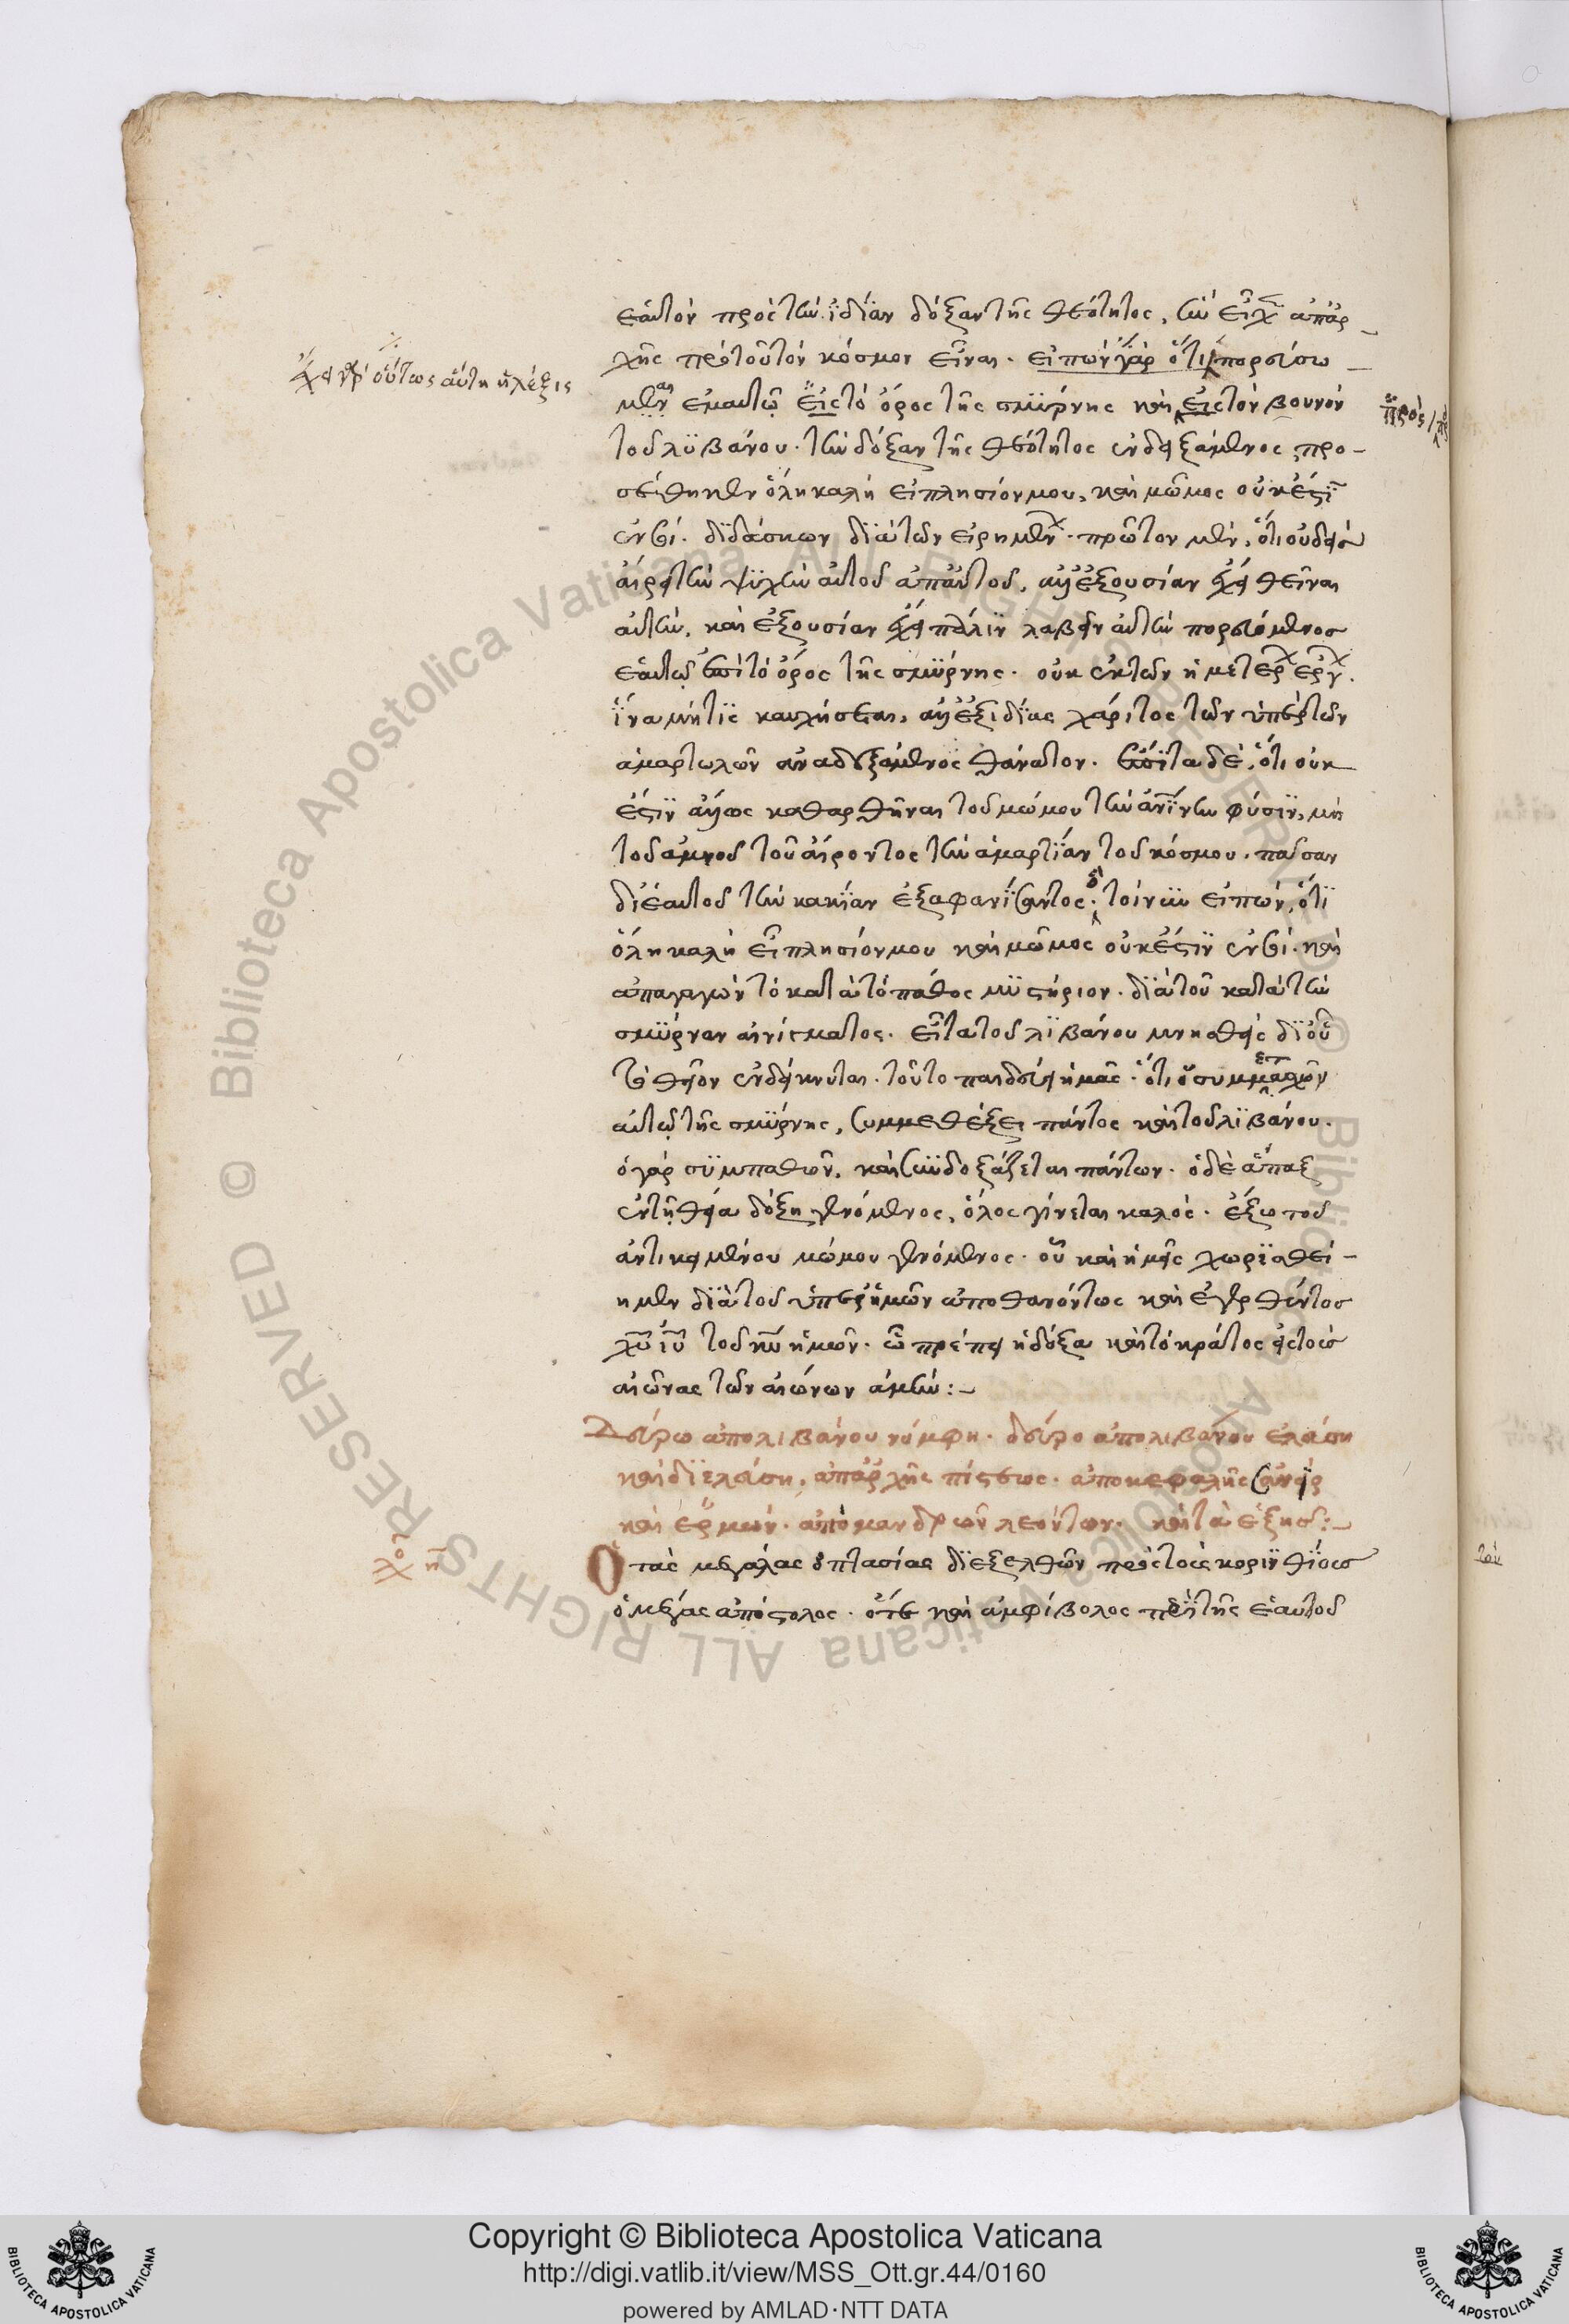 ἑαυτὸν πρὸς τὴν ἰδίαν δόξαν τῆς θεότητος, ἣν εἶχ ἀπαρ
χῆς πρὸ τοῦ τὸν κόσμον εἶναι. εἰπὼν γὰρ ὅτι πορεύσω
μεν ἐμαυτῷ εἰς τὸ ὄρος τῆς σμύρνης καὶ εἰς τὸν βουνὸν
ἔχει γὰρ οὕτως αὕτη ἡ λέξις
πρὸς
τοῦ λϋβάνου. τὴν δόξαν τῆς θεότητος ἐνδειξάμενος, προ-
σέθηκεν ὅλη καλὴ εἶ πλησίον μου, καὶ μῶμος οὐκ ἔστι
ἐν σοί. διδάσκων διὰ τῶν εἰρημεν. πρῶτον μὲν, ὅτι οὐδεὶς
αἴρει τὴν ψυχὴν αὐτοῦ ἀπ' αὐτοῦ, ἀλλ' ἐξουσίαν ἔχει θεῖναι
αὐτὴν, καὶ ἐξουσίαν ἔχει πάλιν λαβεῖν αὐτὴν πορευόμενος
ἑαυτῷ ἐπὶ τὸ ὄρος τῆς σμύρνης. οὐκ ἐκ τῶν ἡμετερ ἔργ.
ἵνα μήτις καυχήσεται, ἀλλ' ἐξ ἰδίας χάριτος τὸν ὑπὲρ τῶν
ἁμαρτωλῶν ἀναδεξάμενος θάνατον. ἔπειτα δὲ, ὅτι οὐκ
ἔστιν ἄλλως καθαρθῆναι τοῦ μώμου τὴν ἀνίνην φύσιν, μὴ
τοῦ ἀμνοῦ τοῦ αἴροντος τὴν ἁμαρτίαν τοῦ κόσμου. πᾶσαν
δι' ἑαυτοῦ τὴν κακίαν ἐξαφανίσαντος. ὁ τοίνυν εἰπὼν, ὅτι
ὅλη καλὴ εἶ πλησίον μου καὶ μῶμος οὐκ ἔστιν ἐν σοί. καὶ
ἐπαγαγὼν τὸ κατὰ τὸ πάθος μυστήριον. διὰ τοῦ κατὰ τὴν
σμύρναν αἰνίγματος. εἶτα τοῦ λιβάνου μνησθεὶς δι' οὗ
τὸ θεῖον ἐνδείκνυται. τοῦτο παιδεύει ἡμᾶς. ὅτι ὁ συμμετασχὼν
αὐτῷ τῆς σμύρνης, συμμεθέξει πάντως καὶ τοῦ λιβάνου.
ὁ γὰρ συμπαθῶν, καὶ συνδοξάζεται πάντως. ὁ δὲ ἅπαξ
ἐν τῇ θείᾳ δόξῃ γενόμενος, ὅλος γίνεται καλὸς. ἔξω τοῦ
ἀντικειμένου μώμου γενόμενος. οὗ καὶ ἡμεῖς χωρισθεί-
ημεν διὰ τοῦ ὑπὲρ ἡμῶν ἀποθανόντος καὶ ἐγερθέντος
χυ ιυ τοῦ κυ ἡμῶν. ᾧ πρέπει ἡ δόξα καὶ τὸ κράτος εἰς τοὺς
αἰῶνας τῶν αἰώνων ἀμήν:-
Δεύρω ἀπολιβάνου νύμφη. δεῦρο ἀπολιβάνου ἐλεύση
καὶ διελεύση. ἀπαρχῆς πίστεως. ἀποκεφαλῆς σανεὶρ
καὶ ἑρμών. ἀπὸ μανδρῶν λεόντων. καὶ τὰ ἑξῆς:-
Ὁ τὰς μεγάλας ὀπτασίας διεξελθὼν πρὸς τοὺς κορινθίους
ὁ μέγας ἀπόστολος. ὅτε καὶ ἀμφίβολος περὶ τῆς ἑαυτοῦ
Copyright © Biblioteca Apostolica Vaticana
http://digi.vatlib.it/view/MSS_Ott.gr.44/0160
powered by AMLAD·NTT DATA